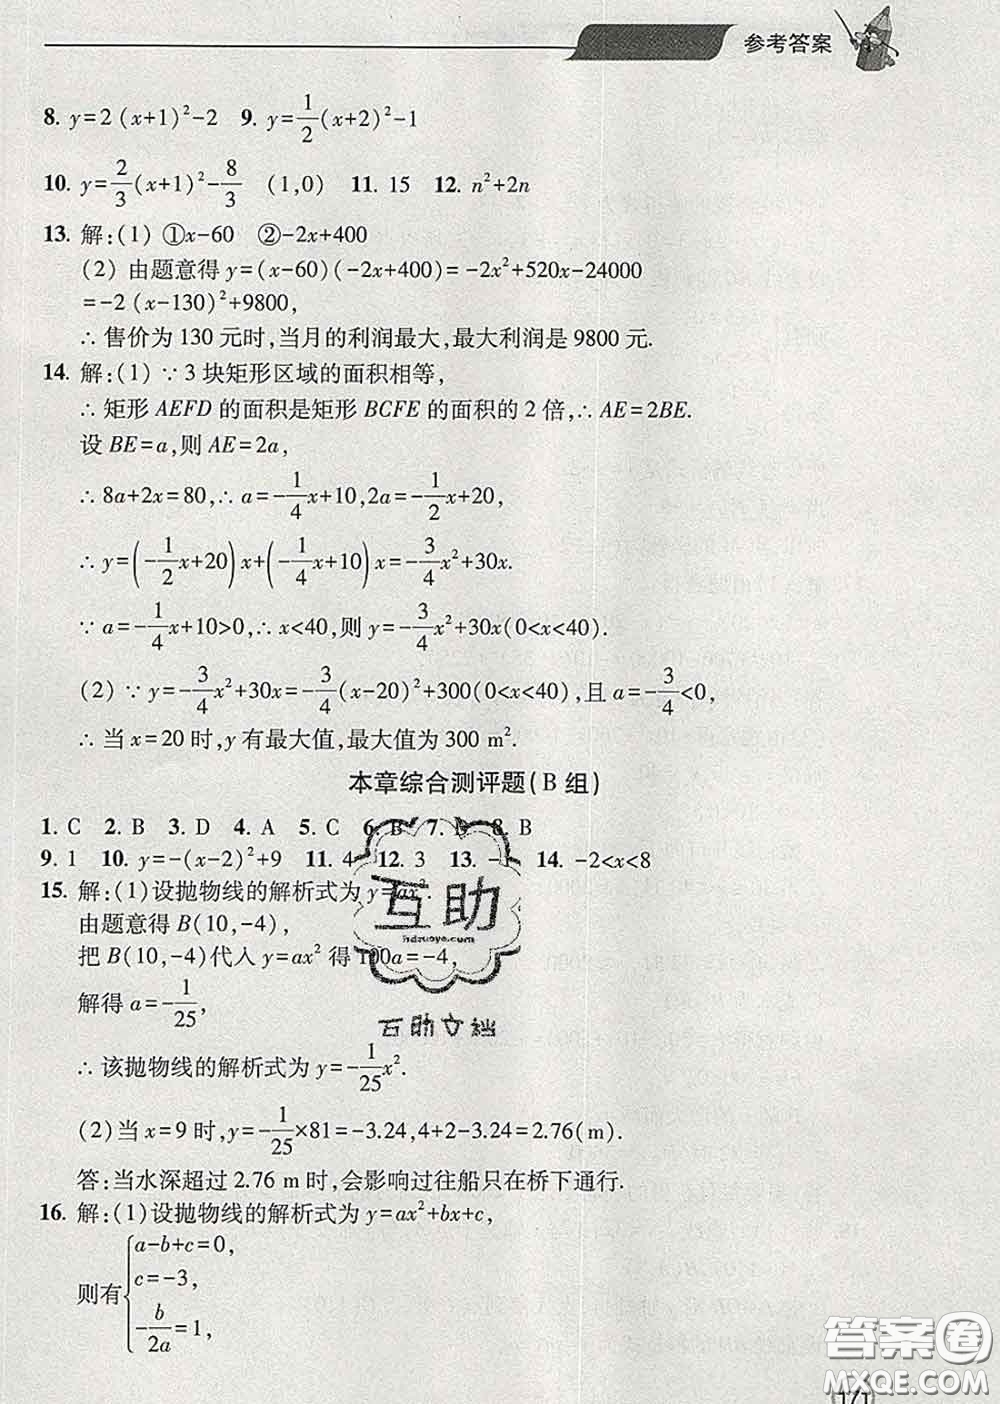 参考答案
8. y=2(x+1)²-2 9. y=1/2(x+2)²-1
10. y=2/3(x+1)²-8/3 (1,0) 11. 15 12. n²+2n
13. 解:(1) ①x-60 ②-2x+400
(2) 由题意得 y=(x-60)(-2x+400)=-2x²+520x-24000
=-2(x-130)²+9800,
∴ 售价为 130 元时,当月的利润最大,最大利润是 9800 元.
14. 解:(1) ∵ 3 块矩形区域的面积相等,
∴ 矩形 AEFD 的面积是矩形 BCFE 的面积的 2 倍,∴ AE=2BE.
设 BE=a,则 AE=2a,
∴ 8a+2x=80,∴ a=-1/4x+10,2a=-1/2x+20,
∴ y=(-1/2x+20)x+(-1/4x+10)x=-3/4x²+30x.
∵ a=-1/4x+10>0,∴ x<40,则 y=-3/4x²+30x(0<x<40).
(2) ∵ y=-3/4x²+30x=-3/4(x-20)²+300(0<x<40),且 a=-3/4<0,
∴ 当 x=20 时,y 有最大值,最大值为 300 m².
本章综合测评题(B 组)
1. C 2. B 3. D 4. A 5. C 6. B 7. 8. B
9. 1 10. y=-(x-2)²+9 11. 4 12. 3 13. 14. -2<x<8
15. 解:(1)设抛物线的解析式为 y=ax².
由题意得 B(10,-4),
把 B(10,-4)代入 y=ax² 得 100a=-4,
解得 a=-1/25,
∴ 该抛物线的解析式为 y=-1/25x².
(2)当 x=9 时,y=-1/25×81=-3.24,4+2-3.24=2.76(m).
答:当水深超过 2.76 m 时,会影响过往船只在桥下通行.
16. 解:(1)设抛物线的解析式为 y=ax²+bx+c,
则有{a-b+c=0,
c=-3,
-b/2a=1,
互助
hdzuoye.com
互助文档
答案圈
MXQE.COM
171